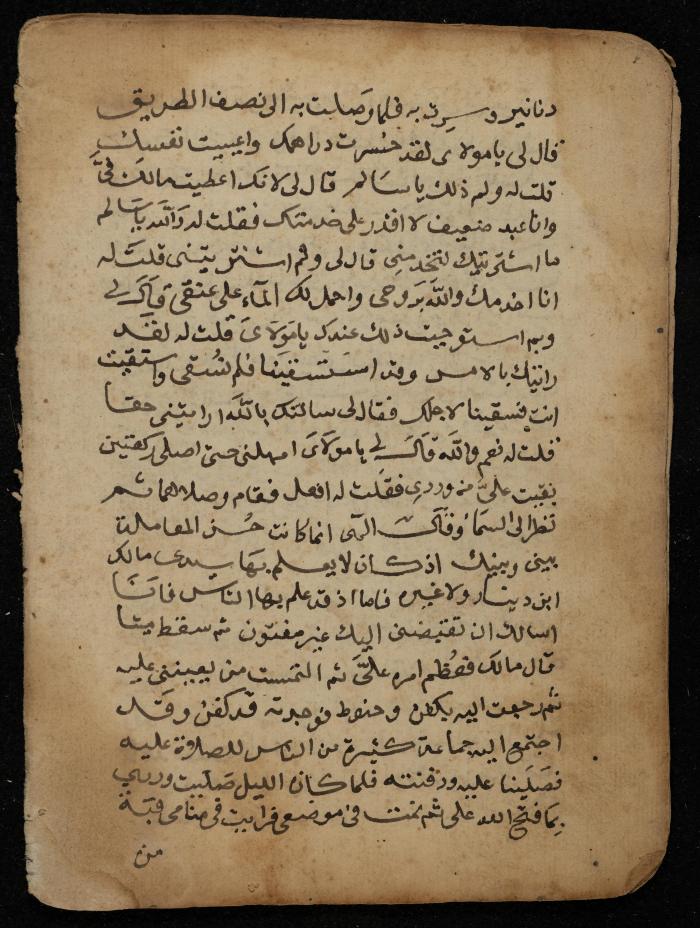 دنانير وسرت به فلما وصلت به الى نصف الطريق
قال لى يا مولاى لقد خسرت دراهمك واعييت نفسك
قلت له ولم ذلك يا سالم قال لى لانك اعطيت مالك فىّ
وانا عبد ضعيف لا اقدر على خدمتك فقلت له والله يا سالم
ما اشتريتك لتخدمنى قال لى ولم اشتريتنى قلت له
انا اخدمك والله بروحى واحمل لك الماء على عنقى قال لى
وبم استوجبت ذلك عندك يا مولاى قلت له لقد
رايتك بالامس وقد استسقينا فلم نسقى واستقيت
انت فسقينا لاجلك فقال لى سالتك بالله ارايتنى حقا
قلت له نعم والله قال لى يا مولاى امهلنى حتى اصلى ركعتين
بقيت علىّ من وردى فقلت له افعل فقام وصلاهما ثم
نظر الى السماء وقال الهى انما كانت حسن المعاملة
بينى وبينك اذ كان لا يعلم بها سيدى مالك
ابن دينار ولا غيره فاما اذ قد علم بها الناس فانا
اسالك ان تقبضنى اليك غير مفتون ثم سقط ميتا
قال مالك فعظم امره علىّ ثم التمست من يعيننى عليه
ثم رجعت اليه بكفن وحنوط فوجدته قد كفن وقد
اجتمع اليه جماعة كثيرة من الناس للصلاة عليه
فصلينا عليه ودفنته فلما كان الليل صليت وردى
بما فتح الله على ثم نمت فى موضعى فرايت فى منامى قبة
من